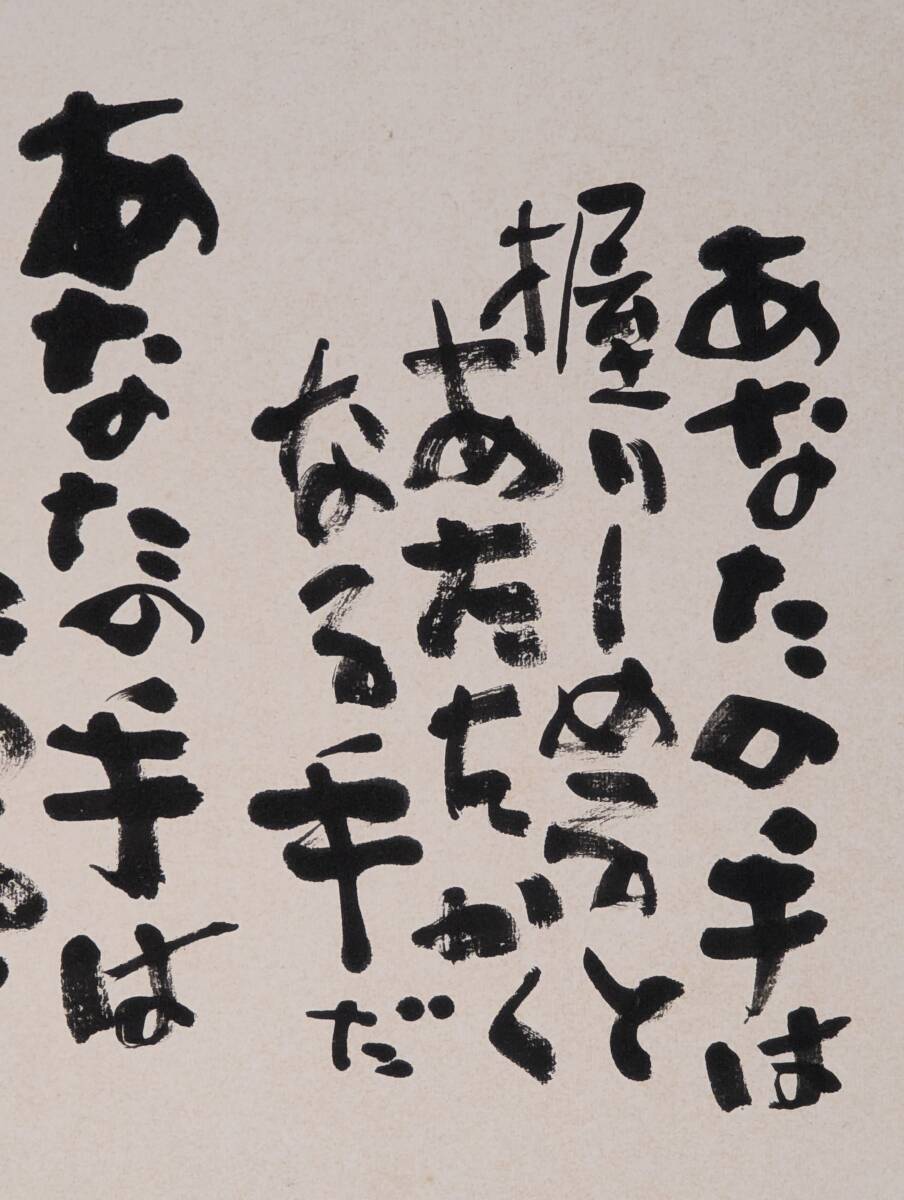 あなたの手は
握りしめると
あたたかく
なる手だ
あなたの手は